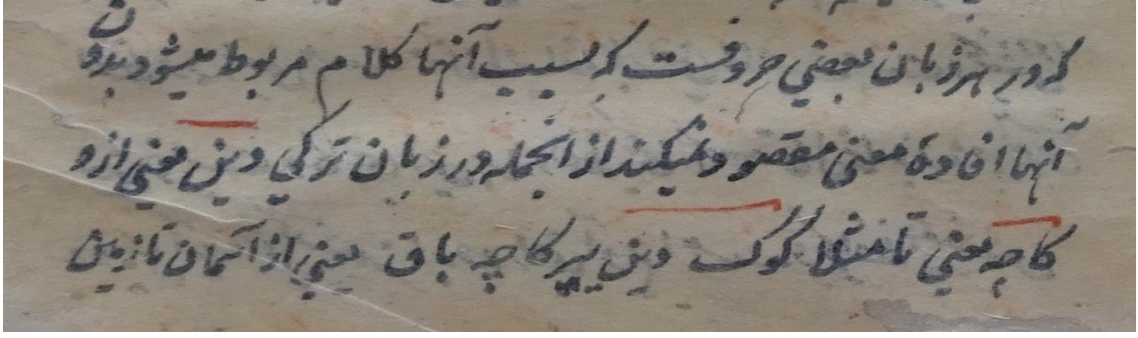 که در هر زبان بعضی حروفست که بسبب آنها کلام مربوط میشود بدون
آنها افادهٔ معنی مقصود نمیکند از انجمله در زبان ترکی دین یعنی از و
کاچه یعنی تا مثلا کوک دین ییر کاچه باق یعنی از آسمان تا زمین